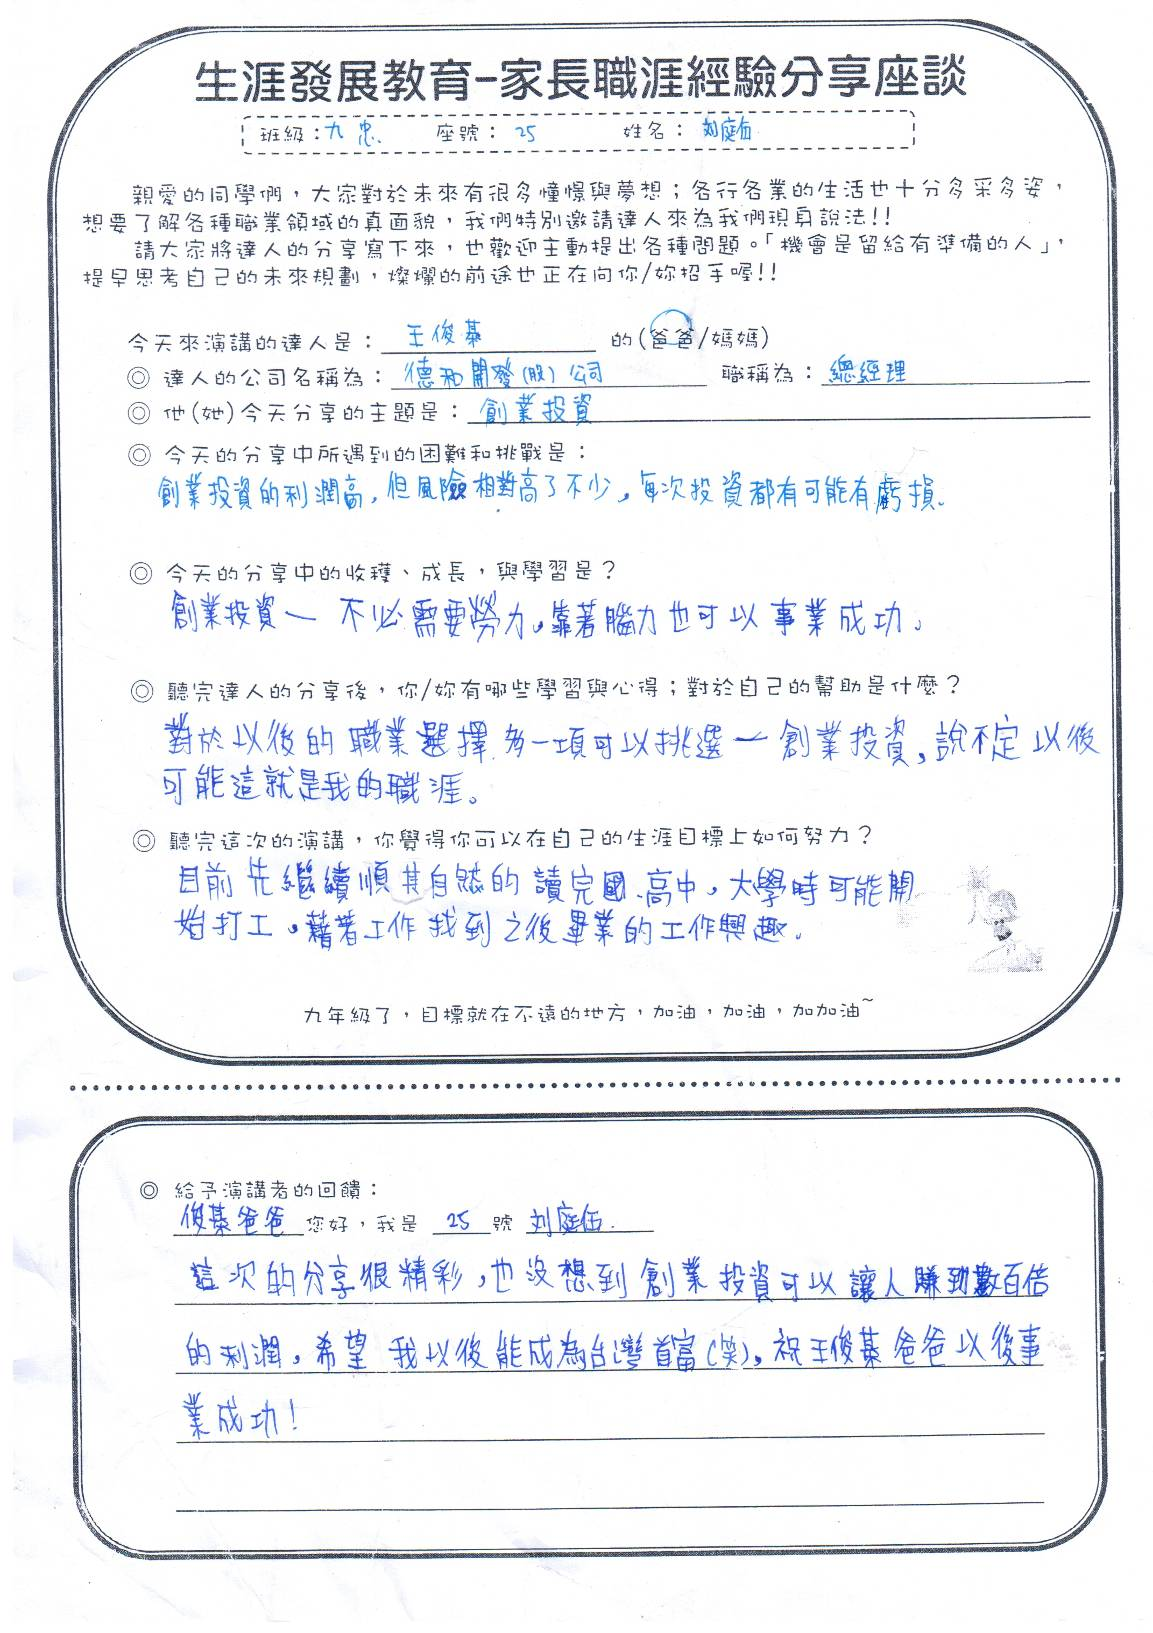 生涯發展教育-家長職涯經驗分享座談
班級：九 忠 座號：25 姓名：刘庭伍
親愛的同學們，大家對於未來有很多憧憬與夢想；各行各業的生活也十分多采多姿，
想要了解各種職業領域的真面貌，我們特別邀請達人來為我們現身說法!!
請大家將達人的分享寫下來，也歡迎主動提出各種問題。「機會是留給有準備的人」，
提早思考自己的未來規劃，燦爛的前途也正在向你/妳招手喔!!
今天來演講的達人是：王俊棊 的(爸爸/媽媽)
◎ 達人的公司名稱為：德和開發(股)公司 職稱為：總經理
◎ 他(她)今天分享的主題是：創業投資
◎ 今天的分享中所遇到的困難和挑戰是：
創業投資的利潤高，但風險相對高了不少，每次投資都有可能有虧損。
◎ 今天的分享中的收穫、成長，與學習是？
創業投資— 不必需要勞力，靠著腦力也可以事業成功。
◎ 聽完達人的分享後，你/妳有哪些學習與心得；對於自己的幫助是什麼？
對於以後的職業選擇多一項可以挑選—創業投資，說不定以後
可能這就是我的職涯。
◎ 聽完這次的演講，你覺得你可以在自己的生涯目標上如何努力？
目前先繼續順其自然的讀完國、高中，大學時可能開
始打工，藉著工作找到之後畢業的工作興趣。
九年級了，目標就在不遠的地方，加油，加油，加加油~
◎ 給予演講者的回饋：
俊棊爸爸 您好，我是 25 號 刘庭伍.
這次的分享很精彩，也沒想到創業投資可以讓人賺到數百倍
的利潤，希望我以後能成為台灣首富(笑)，祝王俊棊爸爸以後事
業成功！